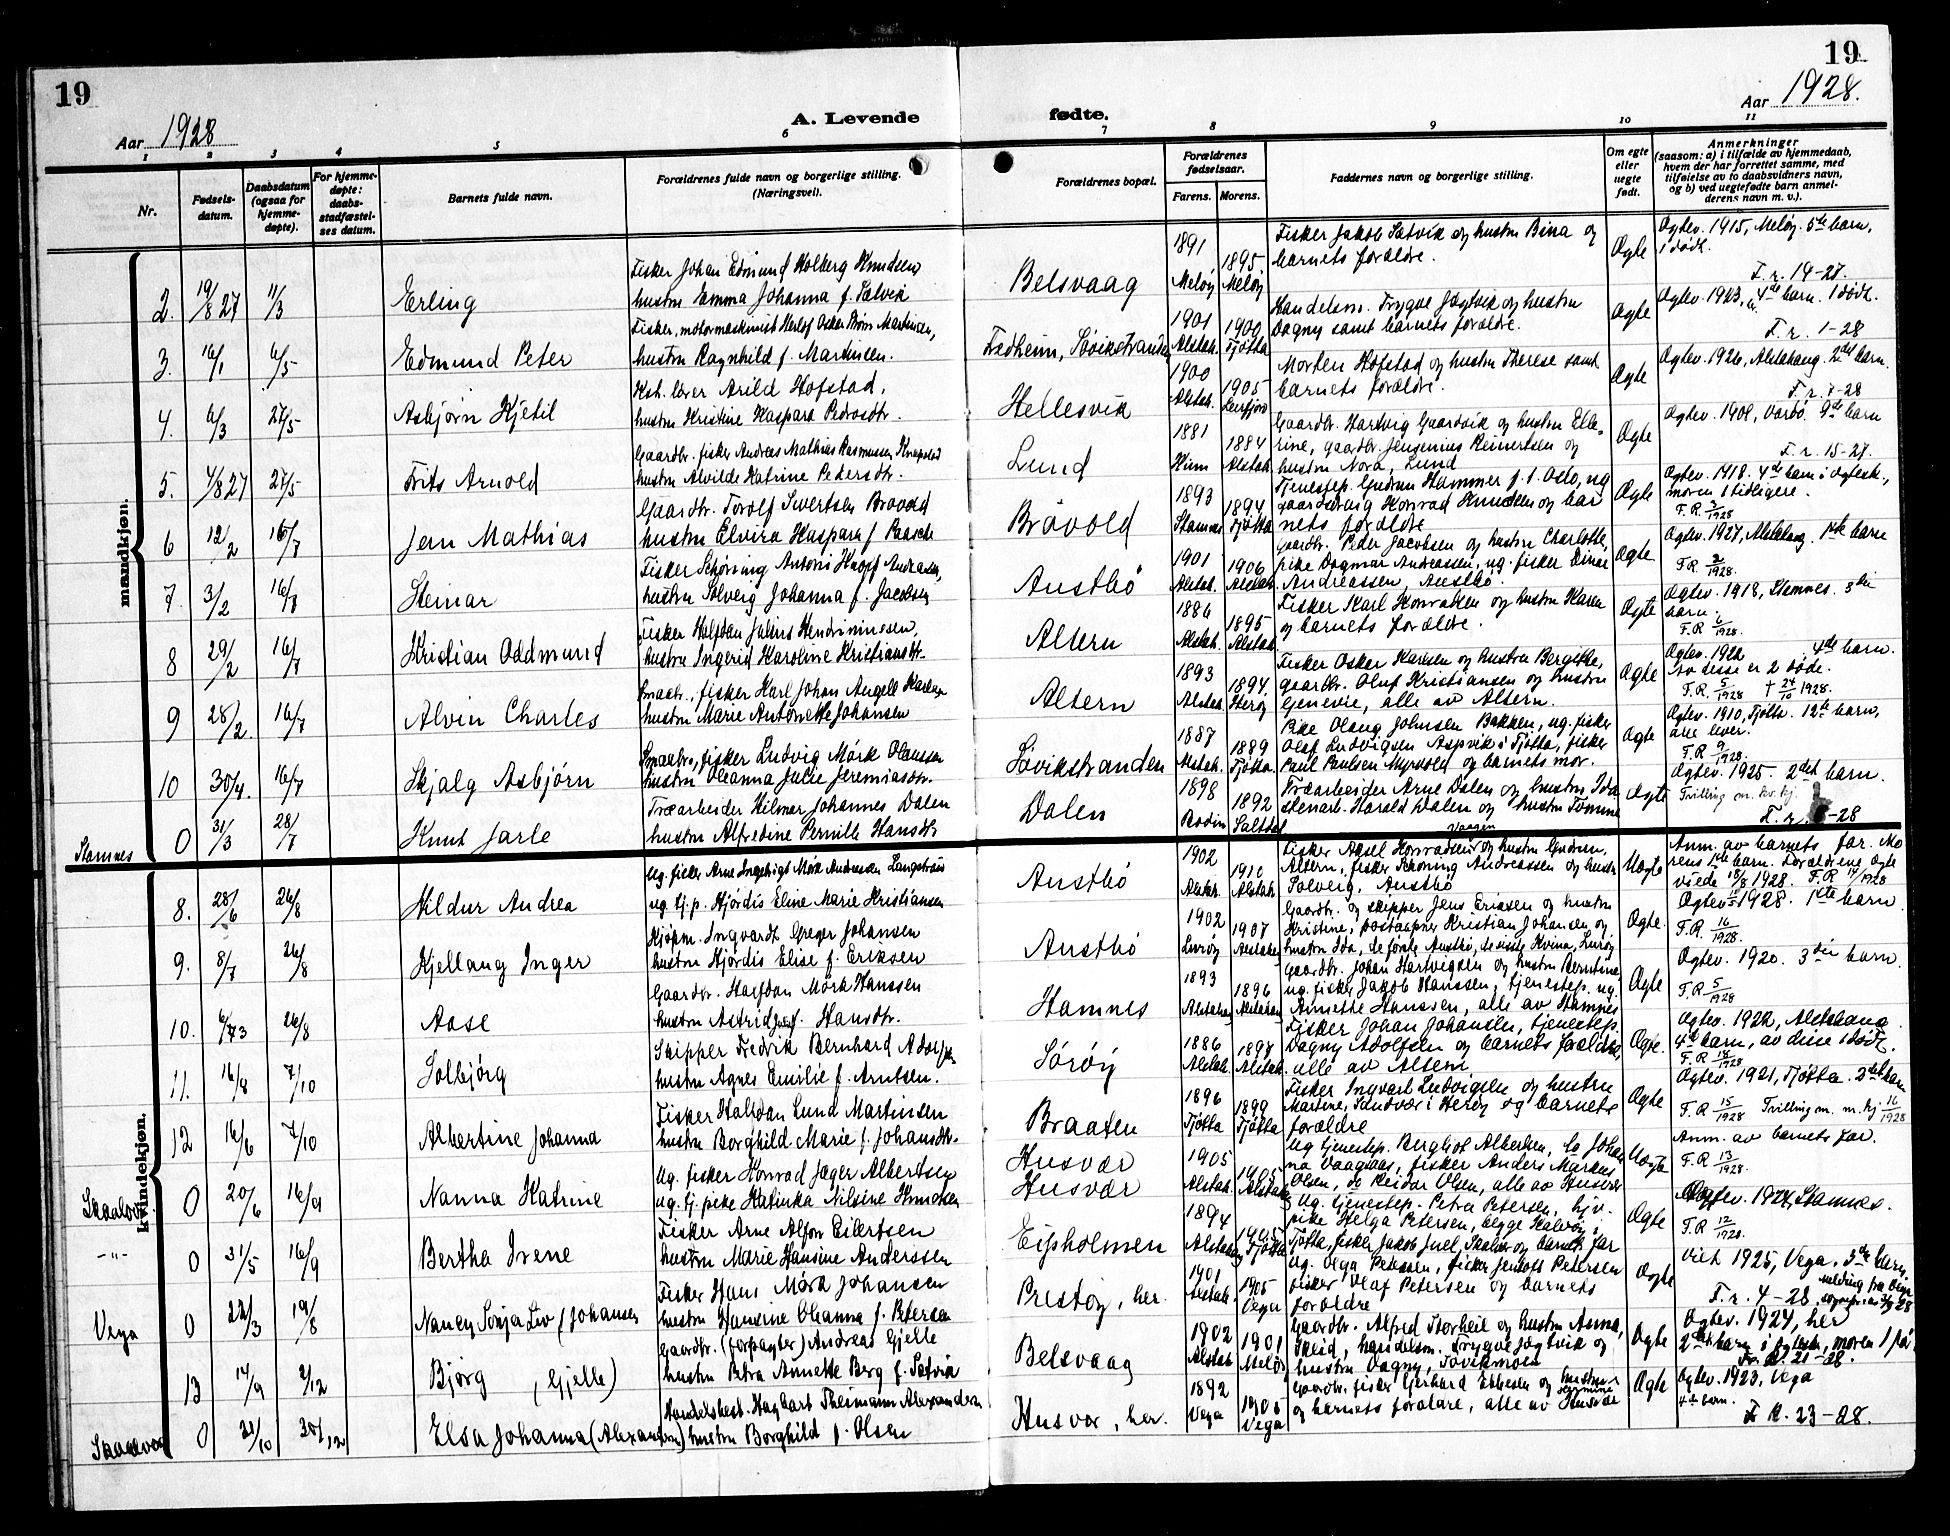 19
19
Aar 1928
A. Levende
fødte.
Aar 1928.
1 2 3 4 5 6 7 8 9 10 11
Nr.
Fødsels-
datum.
Daabsdatum
(ogsaa for
hjemme-
døpte).
For hjemme-
døpte:
daabs-
stadfæstel-
ses datum.
Barnets fulde navn.
Forældrenes fulde navn og borgerlige stilling.
(Næringsvei).
Forældrenes bopæl.
Forældrenes
fødselsaar.
Farens. Morens.
Faddernes navn og borgerlige stilling.
Om egte
eller
uegte
født.
Anmerkninger
(saasom: a) i tilfælde av hjemmedaab,
hvem der har forrettet samme, med
tilføielse av to daabsvidners navn,
og b) ved uegtefødte barn anmel-
derens navn m. v.).
mandkjøn.
2. 19/8 27 11/3 Erling
Fisker Johan Edmund Holberg Knudsen
hustru Emma Johanna f. Sætvik
Belsvaag
1891 Meløy 1895 Meløy
Fisker Jakob Sætvik og hustru Bina og
barnets forældre.
Ægte
Ægtev. 1915, Meløy. 5te barn,
1 dødt.
F. r. 14-27.
3. 16/1 6/5 Edmund Peter
Fisker, motormaskinist Herlof Oskar Martinsen,
hustru Ragnhild f. Martinsen.
Fredheim, Søvikstranden
1901 Alstah. 1900 Tjøtta
Handelsm. Trygve Jægtvik og hustru
Dagny samt barnets forældre.
Ægte
Ægtev. 1923, 4de barn. 1 dødt.
F. r. 1-28
4. 6/3 27/5 Asbjørn Kjetil
Kst. lærer Arild Hofstad,
hustru Kristine Kaspara Pedersdtr.
Hellesvik
1900 Alstah. 1905 Leirfjord
Morten Hofstad og hustru Therese samt
barnets forældre.
Ægte
Ægtev. 1926, Alstahaug. 2det barn.
F. r. 7-28
5. 4/8 27 27/5 Frits Arnold
Gaardbr. fisker Andreas Mathias Rasmussen
hustru Alvilde Katrine Petersdtr.
Lund
1881 1884 Alstah.
Gaardbr. Hartvig Gaardsvik og hustru Elle-
rine, gaardbr. Jensenius Reinertsen og
hustru Nora, Lund
Ægte
Ægtev. 1908, 9de barn
F. r. 15-27.
6 12/2 16/7 Jern Mathias
Gaardbr. Torolf Sivertsen Brøvold
hustru Elvira Kaspara f. Paasche
Brøvold
1893 Stamnes 1894 Tjøtta
Tjenestep. Gudrun Hammer f. t. Oslo, ug
gaardsdreng Konrad Knudsen og bar
nets forældre
Ægte
Ægtev. 1918. 4de barn i ægtesk.,
moren 1 tidligere.
F.R. 3/1928
7. 3/2 16/7 Steinar
Fisker Schjøning Antoni Andreassen,
hustru Solveig Johanna f. Jacobsen
Austbø
1901 Alstah. 1906 Alstah.
Gaardbr. Peter Jacobsen og hustru Charlotte,
pike Dagmar Andreassen, ug. fisker Einar
Andreassen, Austbø.
Ægte
Ægtev. 1927, Alstahaug. 1ste barn
F.R. 2/1928.
8 29/2 16/7 Kristian Oddmund
Fisker Halfdan Julius Hendriksen,
hustru Ingerid Karoline Kristiansdtr.
Altern
1886 Alstah. 1895 Alstah.
Fisker Karl Konradsen og hustru Karen
og barnets forældre.
Ægte
Ægtev. 1918, Stamnes. 3die
barn.
F.R. 6/1928.
9 28/2. 16/7 Alvin Charles
Smaabr., fisker Karl Johan Angell Karlsen
hustru Marie Antonette Johansen
Altern
1893 Alstah. 1894. Herøy
Fisker Oskar Karlsen og hustru Bergithe,
gaardbr. Oluf Kristiansen og hustru
Genevie, alle av Altern.
Ægte
Ægtev. 1922 4de barn.
Av disse er 2 døde.
F.R. 5/1928 † 24/10 1928.
10 30/4. 16/7 Skjalg Asbjørn
Smaabr., fisker Ludvig Mørk Olaussen
hustru Oleanna Julie Jeremiasdtr.
Søvikstranden
1887 Alstah. 1889 Tjøtta.
Pike Olaug Johnsen Bakken, ug. fisker
Olaf Ludvigsen Aspvik i Tjøtta, fisker
Paul Paulsen Myrvold og barnets mor.
Ægte
Ægtev. 1910, Tjøtta. 12te barn,
alle lever.
F.R. 9/1928.
Stamnes 0 31/3 28/7 Knut Jarle
Træarbeider Hilmar Johannes Dalen
hustru Alfredine Pernille Hansdtr
Dalen
1898 Bodin 1892 Saltdal
Træarbeider Arne Dalen og hustru Ida
stenarb. Harald Dalen og hustru Tomine
Vaagen
Ægte
Ægtev. 1925. 2det barn.
Tvilling m. kv.kj.
F. r. -28
kvindekjøn.
8. 28/6 26/8 Hildur Andrea
Ug. fisker Arne Ingebrigt Mørk Andersen Langstrøm
ug. tj. p. Hjørdis Eline Marie Kristiansen
Austbø
1902 Alstah. 1910 Alstah.
Fisker Aksel Konradsen og hustru Gudrun,
Altern, fisker Schøning Andreassen og hustru
Solveig, Austbø
Uægte
Anm. av barnets far. Mo
rens 1ste barn. Forældrene ægte
viede 18/8 1928. F.R 14/1928
9. 8/7 26/8 Kjellaug Inger
Kjøpm. Ingvardt Greger Johansen
hustru Hjørdis Elise f. Eriksen
Austbø
1902 Lurøy 1907 Alstah.
Gaardbr. og skipper Jens Eriksen og hustru
Kristine, postaapner Kristian Johansen og
hustru Ida, de første Austbø, de sidste Kvina, Lurøy
Ægte.
Ægtev. 1928. 1ste barn
F.R. 16/1928.
10. 6/7 23 26/8 Aase
Gaardbr. Halfdan Mørk Hanssen
hustru Astrid f. Hansdtr.
Hamnes
1893 Alstahaug 1896 Alstahaug
Gaardbr. Johan Hartvigsen og hustru Berntine
ug. fisker Jakob Hanssen, tjenestep. ug.
Annethe Hanssen, alle av Hamnes
Ægte
Ægtev. 1920. 3die barn.
F.R 5/1928
11. 16/8 7/10 Solbjørg
Skipper Fredrik Bernhard Adolfsen
hustru Agnes Emilie f. Arntsen.
Sørøy
1886 Alstah. 1898 Alstah.
Fisker Johan Johansen, tjenestep.
Dagny Adolfsen og barnets forældre,
alle av Altern
Ægte.
Ægtev. 1922, Alstahaug.
4de barn, av disse 1 dødt.
F.R 18/1928
12 16/6 7/10 Albertine Johanna
Fisker Halfdan Lund Martinsen
hustru Borghild Marie f. Johansdtr.
Braaten
1896 Tjøtta 1899 Tjøtta
Fisker Ingvart Ludvigsen og hustru
Martine, Sandvær i Herøy og barnets
forældre
Ægte
Ægtev. 1921, Tjøtta. 2det barn
F.R 15/1928 Tvilling m. m. kj 16/1928
Skaalvær 0 20/6 16/9 Nanna Katrine
Ug. fisker Konrad Jæger Albertsen
ug. tj. pike Katinka Nilsine Knudsen
Husvær
Husvær
1905 Alstah. 1905 Alstahaug
Ug tjenestep. Bergliot Albertsen, do Johan
na Vaagsaas, fisker Anders Markus
Olsen, do Reidar Olsen, alle av Husvær
Uægte
Anm. av barnets far.
F.R 13/1928.
-"- 0 31/5 16/9 Bertha Irene
Fisker Arne Alfon Eilertsen
hustru Marie Hansine Anderssen
Eipholmen
1894 Alstahaug 1905 Tjøtta
Ug. tjenestep. Petra Petersen, hjv.
pike Helga Petersen, begge Skalvær i
Tjøtta, fisker Jakob Juel, Skalvær og barnets far
Ægte
Ægtev. 1924, Stamnes.
F.R. 12/1928.
Vega 0 22/3 19/8 Nancy Sonja Liv (Johansen
Fisker Hans Mørk Johansen
hustru Hansine Oleanna f. Petersen
Prestøy, her.
1901 Alstah. 1905 Vega
Ug. Olga Petersen, fisker Jentoft Petersen
fisker Olaf Petersen og barnets
forældre
Ægte
Viet 1925, Vega, 3die barn.
melding fra Vega
F. r. 4-28
13 14/9 2/12 Bjørg (Gjelle)
Gaardbr. (forpagter) Andreas Gjelle
hustru Petra Annette Berg f. Sætvik
Belsvaag
1902 Alstah. 1901 Meløy
Gaardbr. Alfred Storheil og hustru Anna,
Skeid, handelsm. Trygve Jægtvik og
hustru Dagny, Søvikmoen
Ægte
Ægtev. 1924, her
2det barn i ægtesk., moren 1 før
F. R. 21-28.
Skaalvær 0 31/10 30/12 Elsa Johanna (Alexandersen)
Handelsbest. Hagbart Theimann Alexandersen
hustru Borghild f. Olsen
Husvær, her.
1892 Vega 1905 Vega
Gaardbr. fisker Gerhard Ebbesen og hustru
og barnets forældre, alle av Husvær
Ægte
Ægtev. 1923, Vega
4de barn.
F. R. 23-28.